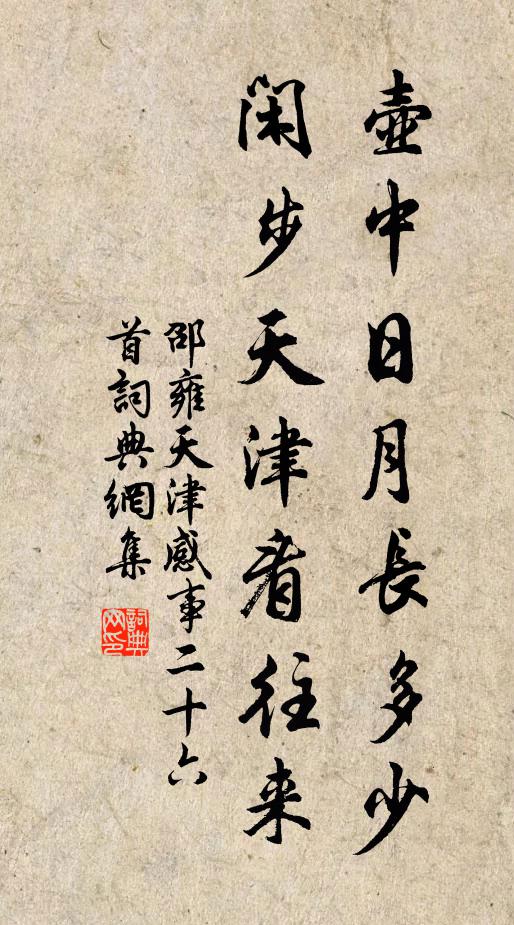 壺中日月長多少
閑步天津看往来
邵雍天津感事二十六
首詞典網集
詞典网印